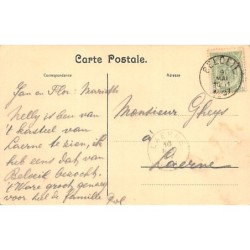 Carte Postale.
Correspondance
Adresse
Jan en Flor. Mariette
Nelly is ben van
't kasteel van
Laerne tz ien, ik
heb eens dat van
Belœil besocht.
't Ware groot genoeg
voor heel de familie
Monsieur Gheys
Laerne
BELOEIL